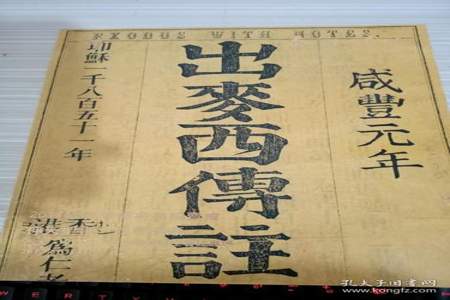 EXODUS WITH NOTES.
咸豐元年
出麥西傳註
耶蘇一千八百五十一年
為仁
孔夫子旧书网
www.kongfz.com